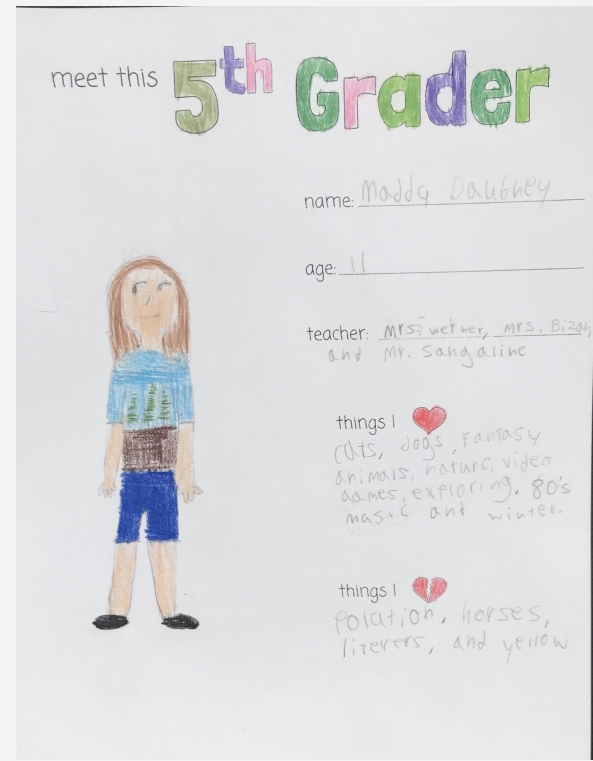 meet this 5th Grader
name: Maddy Daubney
age: 11
teacher: Mrs. wether, Mrs. Bizah,
and Mr. Sangaline
things I
cats, dogs, Fantasy
animals, nature, video
games, exploring, 80's
music and winter.
things I
Polation, horses,
literers, and yellow